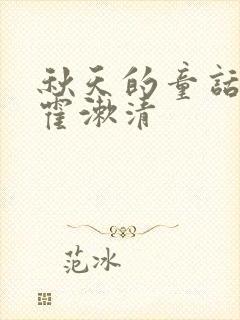 秋天的童話
霍漱清
范冰